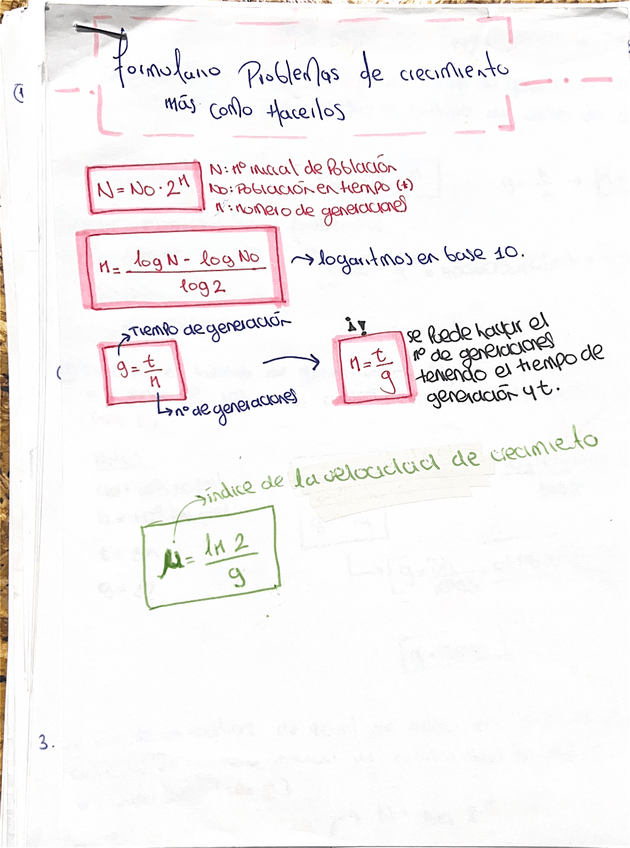 Formulario Problemas de crecimiento
más como Hacerlos
N = No · 2ⁿ
N: nº inicial de Población
No: Población en tiempo (t)
n: número de generaciones
n = (log N - log No) / log 2
→ logaritmos en base 10.
Tiempo de generación
g = t/n
nº de generaciones
¡!
n = t/g
se Puede hallar el
nº de generaciones
teniendo el tiempo de
generación y t.
índice de la velocidad de crecimiento
μ = ln 2 / g
3.